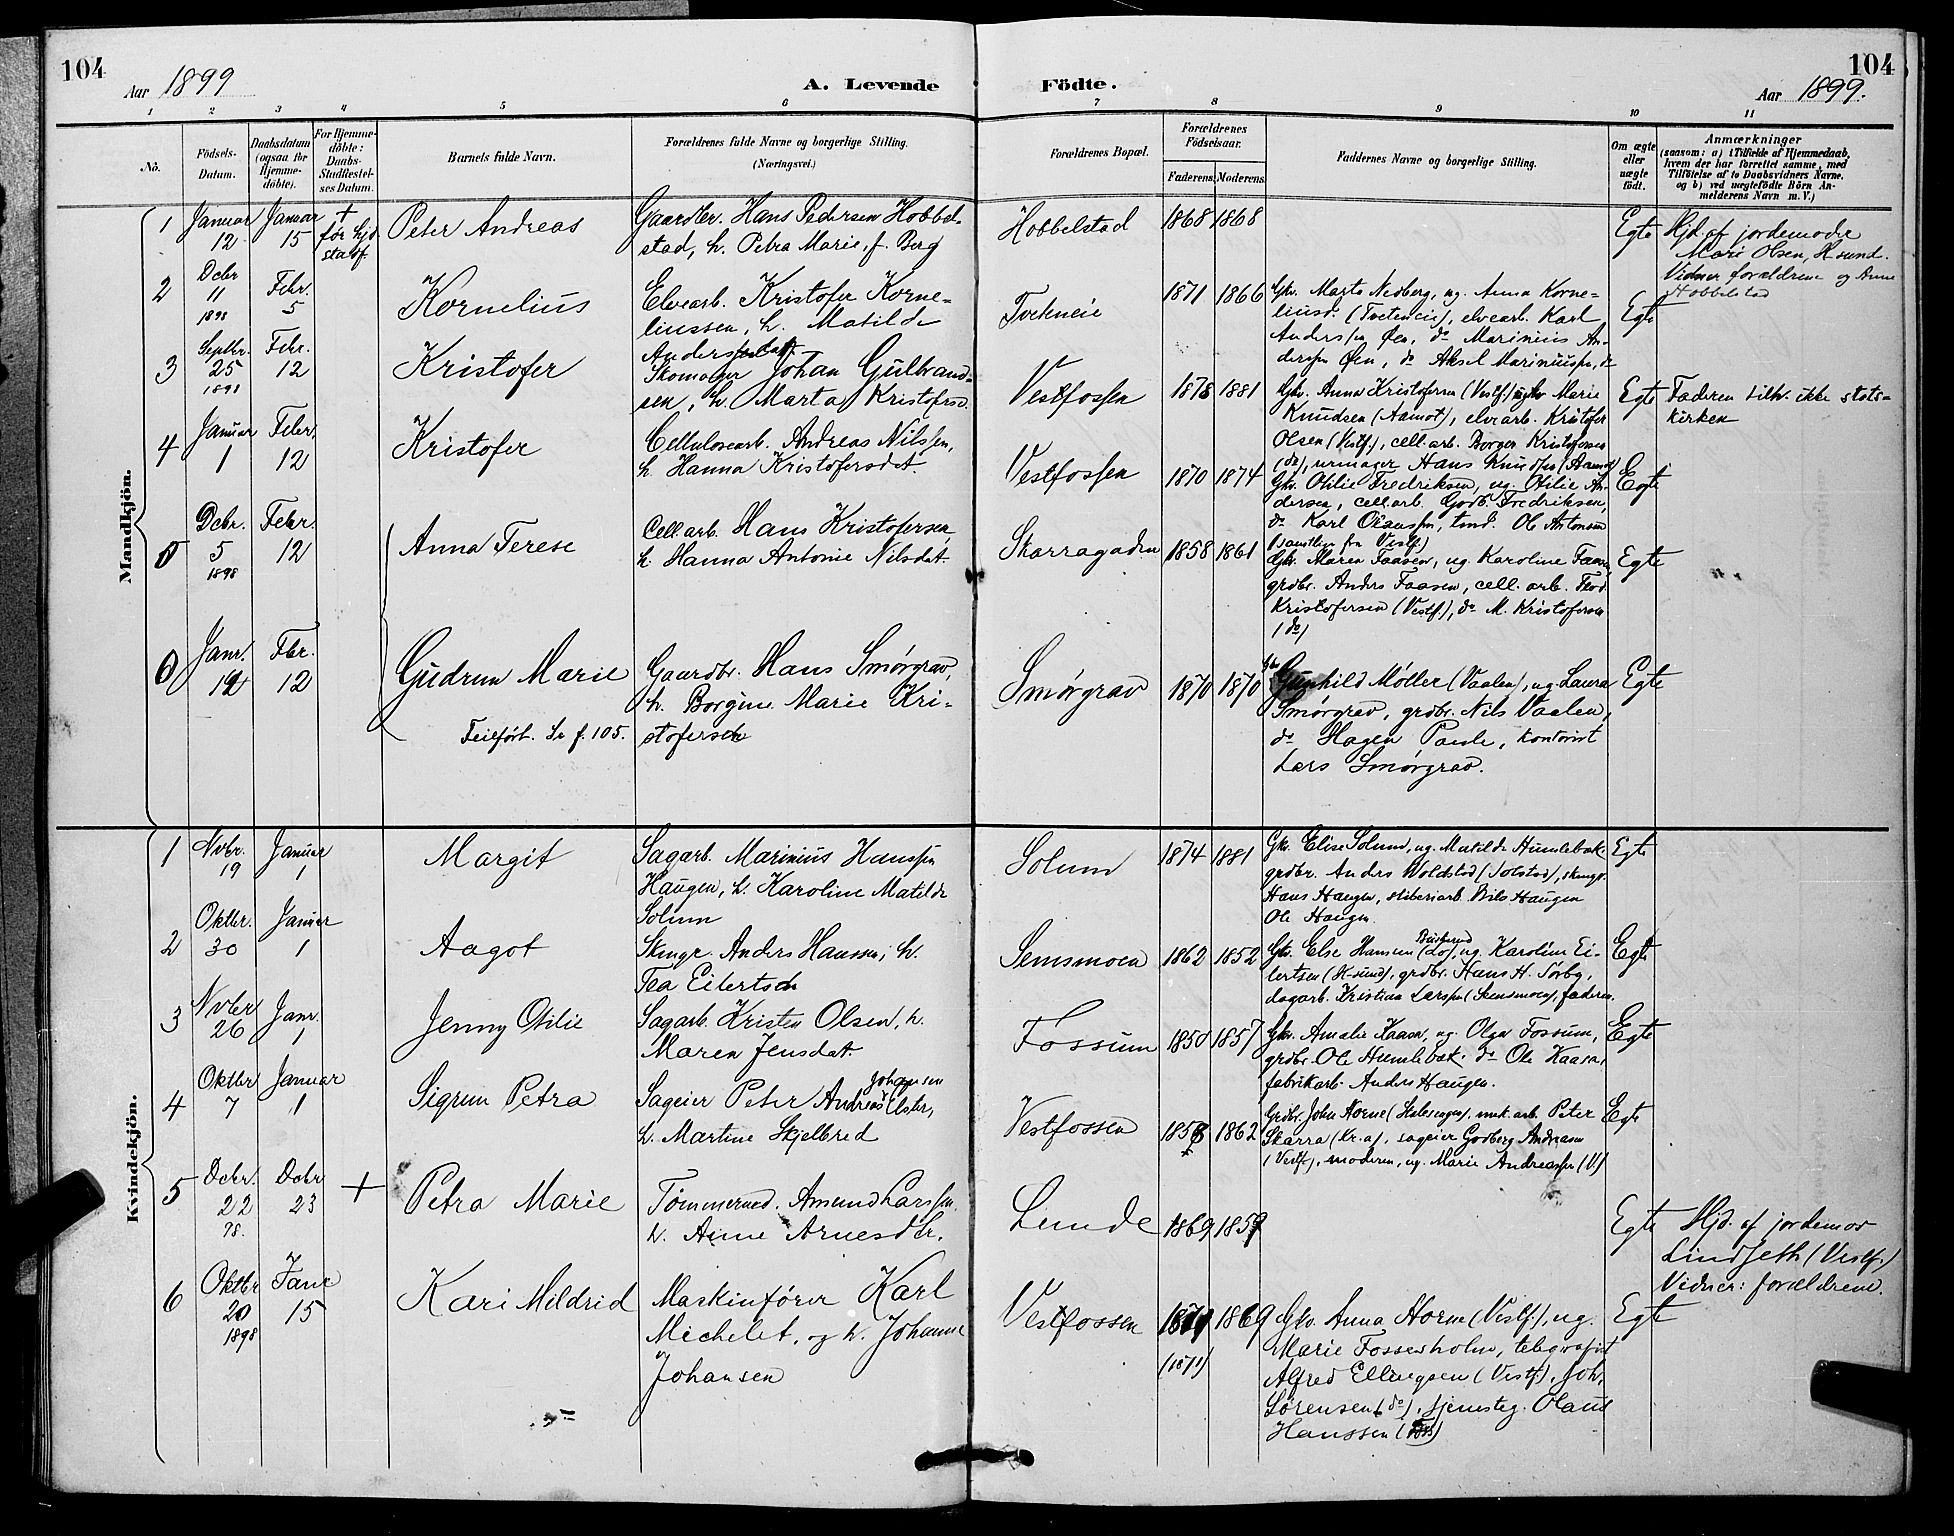 104
Aar 1899
A. Levende Födte.
104
Aar 1899.
1 2 3 4 5 6 7 8 9 10 11
No.
Födsels-
Datum.
Daabsdatum
(ogsaa for
Hjemme-
döbte).
For Hjemme-
döbte:
Daabs-
Stadfæstel-
ses Datum.
Barnets fulde Navn.
Forældrenes fulde Navne og borgerlige Stilling.
(Næringsvei.)
Forældrenes Bopæl.
Forældrenes
Födselsaar.
Faderens. Moderens.
Faddernes Navne og borgerlige Stilling.
Om ægte
eller
uægte
födt.
Anmærkninger
(saasom: a) i Tilfælde af Hjemmedaab,
hvem der har forrettet samme, med
Tilföielse af to Daabsvidners Navne,
og b) ved uægtefödte Börn An-
melderens Navn m. V.)
Mandkjön.
1 Januar 12 Januar 15 + før hjd. stadf.
Peter Andreas
Gaardbr. Hans Pedersen Hobbel-
stad, h. Petra Marie, f. Berg
Hobbelstad 1868 1868
Egte
Hjd. af jordemoder
Mari Olsen, H.sund.
Vidner forældrene og Anne
Hobbelstad
2 Dcbr 11 1898 Febr. 5
Kornelius
Elvearb. Kristofer Korne-
liussen, h. Matilde
Andersdat.
1871 1866
Gkv. Marta Nedberg, ug. Anna Korne-
liusd. (Tveteneie), elvearb. Karl
Anderssen Øen, do Marinius An-
derssen Øen, do Aksel Mariniussen, do
Egte
3 Septbr. 25 1898 Febr. 12
Kristofer
Skomager Johan Gulbrand-
sen, h. Marta Kristofersd.
Vestfossen 1878 1881
Gkv. Anna Kristofersen (Vestf.) ugkv Marie
Knudsen (Aamot), elvearb. Kristofer
Olsen (Vestf.), cell.arb. Borger Kristofersen
(do), urmager Hans Knudsen (Aamot)
Egte
Faderen tilh. ikke stats-
kirken
4 Januar 1 Febr. 12
Kristofer
Cellulosearb. Andreas Nilssen,
h. Hanna Kristofersdat.
Vestfossen 1870 1874
Gkv. Otilie Fredriksen, ug. Otilie An-
dersen, cell.arb. Godb. Fredriksen,
do Karl Olaussen, tmd. Ole Antonsen
(samtlige fra Vestf.)
Egte
5 Dcbr. 5 1898 Febr. 12
Anna Terese
Cell.arb. Hans Kristofersen,
h. Hanna Antonie Nilsdat.
Skarragaden 1858 1861
Gkv. Maren Faasen, ug. Karoline Faasen,
grdbr. Anders Faasen, cell. arb. Teod.
Kristofersen (Vestf.), do M. Kristofersen
(do)
Egte
6 Janr. 19 Fbr. 12
Gudrun Marie
Feilført. Se f. 105.
Gaardbr. Hans Smørgrav,
h. Borgine Marie Kri-
stofersen
Smørgrav 1870 1870
Gkv Gunhild Møller (Vaalen), ug Laura
Smørgrav, grdbr. Nils Vaalen,
do Hagen Paule, kontorist
Lars Smørgrav.
Egte
Kvindekjön.
1 Nvbr. 19 Januar 1
Margit
Sagarb. Marinius Hanssen
Haugen, h. Karoline Matilde
Solum
Solum 1874 1881
Gkv. Elise Solum, ug. Matilde Humlebæk
grdbr. Anders Woldstad (Solstad), skmgr.
Hans Haugen, sliberiarb. Nils Haugen
Ole Haugen
Egte
2 Oktbr. 30 Januar 1
Aagot
Skmgr. Anders Hanssen, h.
Tea Eilertsen
Semsmoen 1862 1852
Gkv. Else Hansen (Lo, Buskerud), ug. Karoline Ei-
lertsen (H-sund), grdbr. Hans H. Sørby,
dagarb. Kristian Larssen (Semsmoen), faderen.
Egte
3 Nvbr 26 Janr. 1
Jenny Otilie
Sagarb. Kristen Olsen, h.
Maren Jensdat.
Fossum 1850 1857
Gkv. Amalie Kaasa, ug. Olga Fossum,
grdbr. Ole Humlebæk. do Ole Kaasa,
fabrikarb. Anders Haugen.
Egte
4 Oktbr 7 Januar 1
Sigrun Petra
Sageier Peter Andreas Johansen Elster,
h. Martine Skjelbred
Vestfossen 1858 1862
Grdbr. John Horne, mek. arb. Peter
Skarra (Kr.a), sageier Godberg Andreasen
(Vestf.), moderen, ug. Marie Andreassen (V.)
Egte
5 Dcbr. 22 98. Dcbr 23 +
Petra Marie
Tømmermd. Amund Larssen,
h. Anne Arnesdtr.
Lunde 1869 1859
Egte
Hjd. af jordemor
Lindseth (Vestf.)
Vidner: forældrene.
6 Oktbr 20 1898 Janr 15
Kari Mildrid
Maskinfører Karl
Michelet, og h. Johanne
Johansen
Vestfossen 1871 (1871) 1869
Gkv. Anna Horne (Vestf.), ug.
Marie Fossesholm, telegrafist
Alfred Ellingsen (Vestf.), Joh.
Sørensen (do), tjenesteg. Olaus
Hanssen
Egte